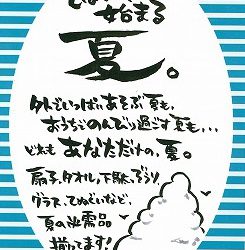 始まる
夏。
外でいっぱいあそぶ夏も、
おうちでのんびり過ごす夏も・・・
どれも あなただけの、夏。
扇子、タオル、下駄、ぞうり
グラス、てぬぐいなど、
夏の必需品
揃ってます！